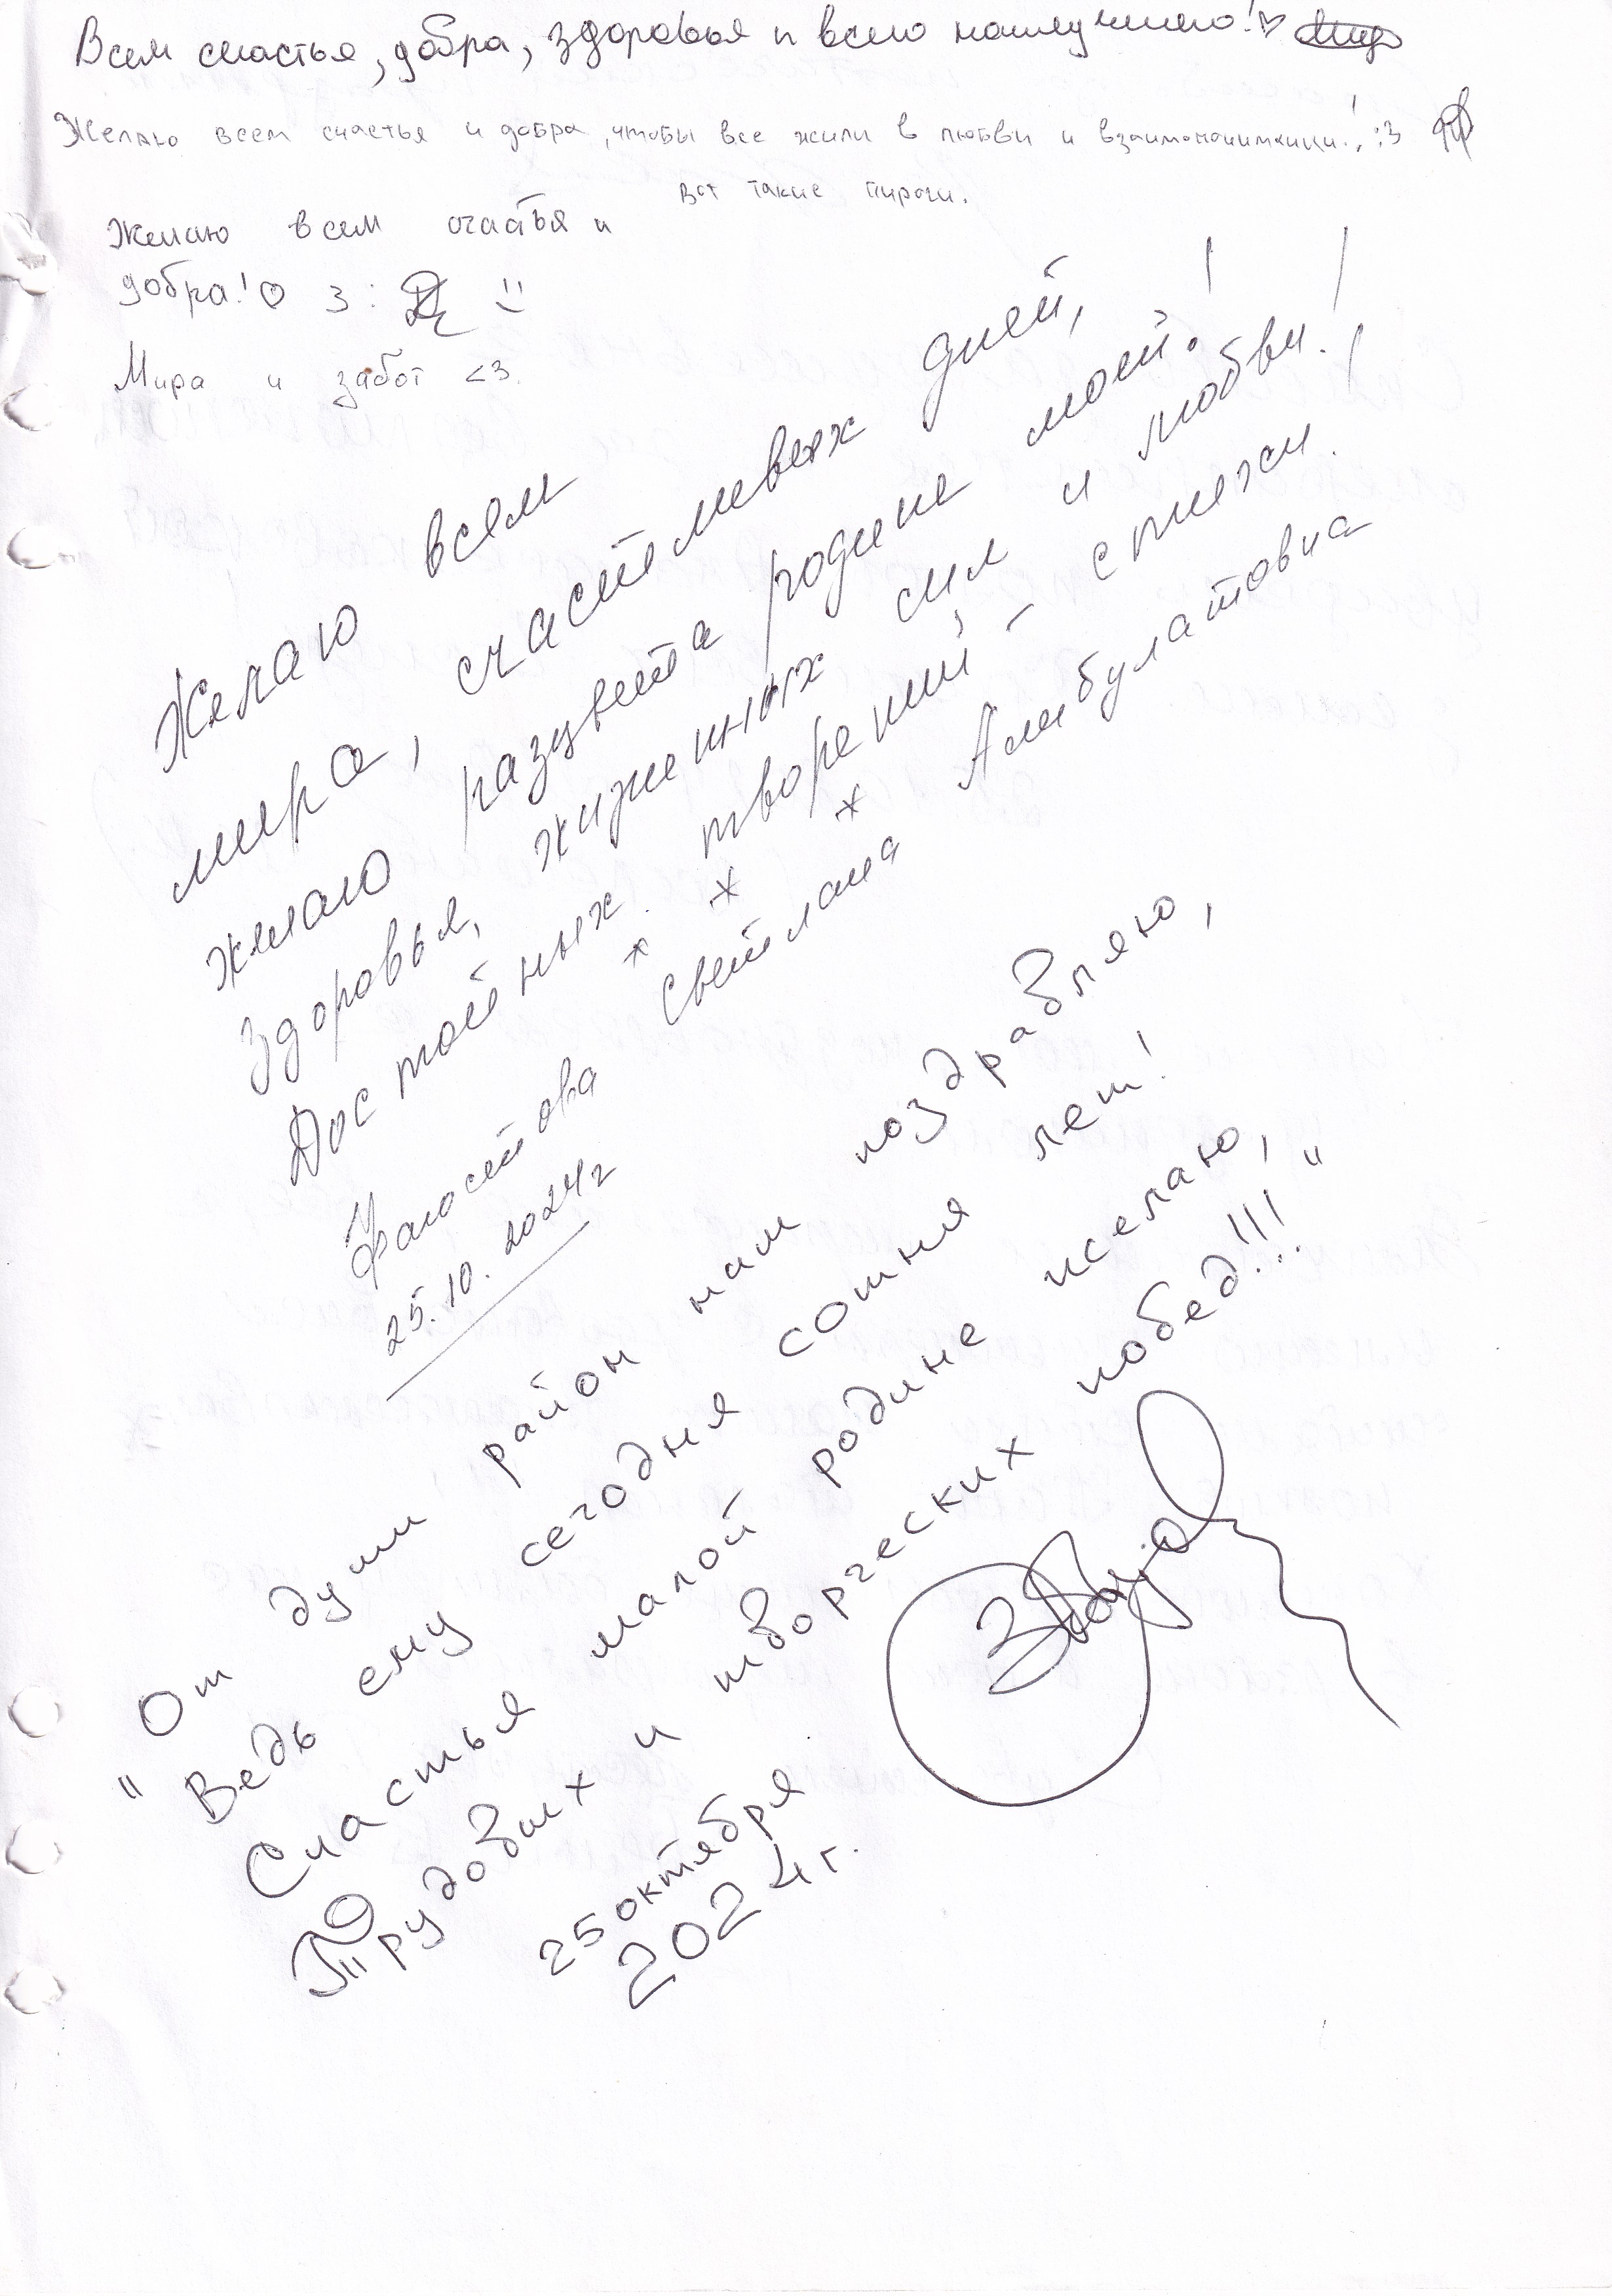 Всем счастья, добра, здоровья и всего наилучшего!♡
Желаю всем счастья и добра, чтобы все жили в любви и взаимопонимании! :3
Вот такие пироги.
Желаю всем счастья и
добра!♡ 3:
Мира и забот <3.
Желаю всем
мира, счастливых дней,
желаю разцвета родине моей!
Здоровья, жизненных сил и любви!
Достойных творений, – стихи.
* * *
Светлана Алибулатовна
25.10.2024г
"От души район наш поздравляю,
Ведь ему сегодня сотня лет!
Счастья малой родине желаю,
Трудовых и творческих побед!!!"
25 октября
2024 г.